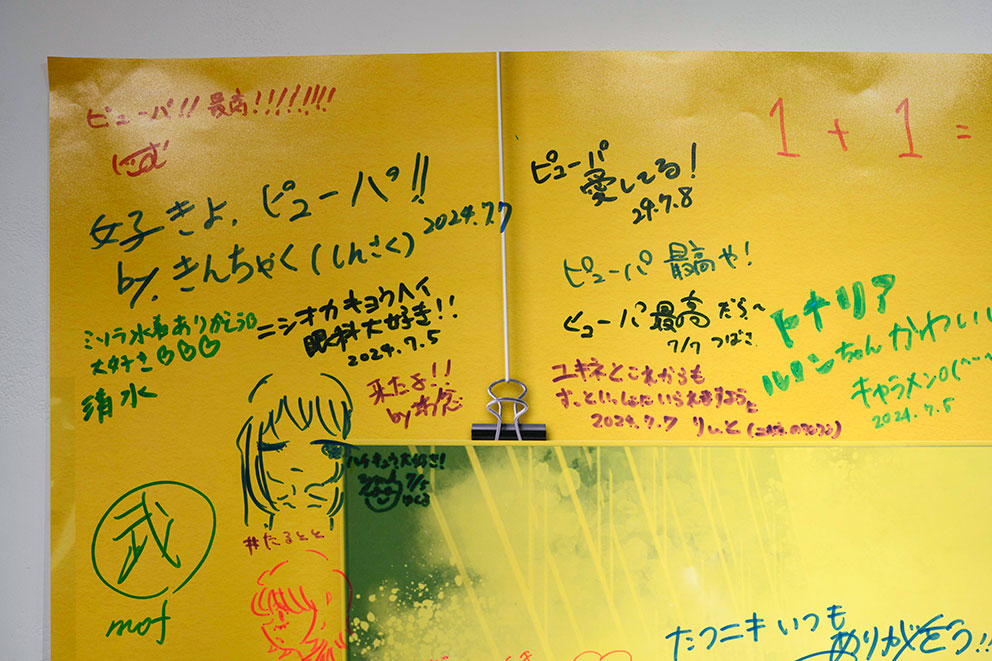 ピューパ!! 最高!!!!!!!!
女子きよ. ピューパ!!
by. きんちゃく(しんさく) 2024.7.7
ミソラ水着ありがとう
大好き♡♡♡
清水
ニシオカキョウヘイ
眼科大好き!!
2024.7.5
来たよ!!
by
#たるとと
式
mof
1 + 1 =
ピューパ
愛してる!
29.7.8
ピューパ 最高や!
ピューパ最高だら〜
7/7 つばさ
ユキネとこれからも
ずっといっしょにいられますように
2024.7.7 りぃと
トナリア
ルリンちゃんかわいい
キャラメン
2024.7.5
大好き!
7/5
たつニキいつも
ありがとう!!